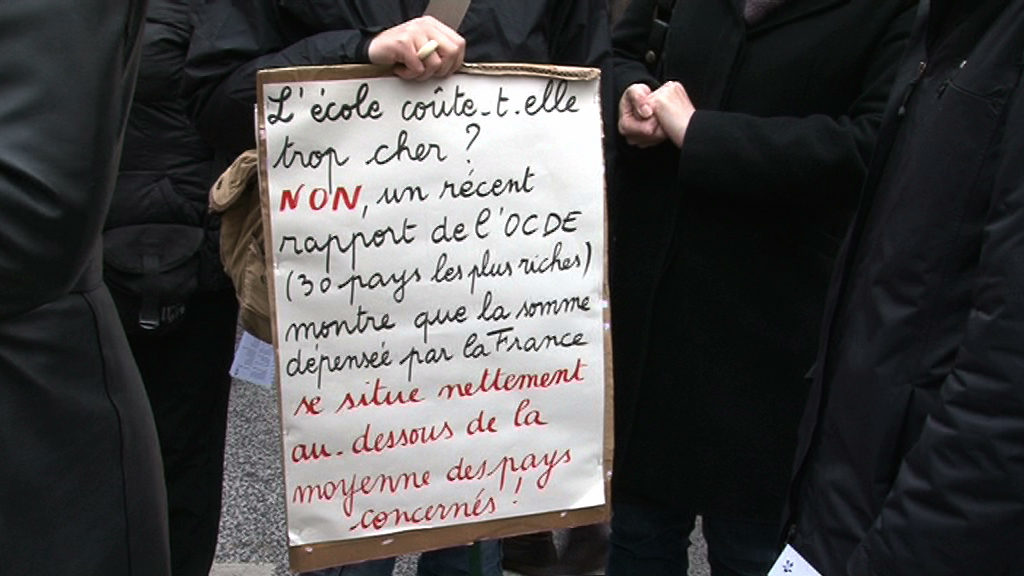 L'école coûte-t-elle
trop cher ?
NON, un récent
rapport de l'OCDE
(30 pays les plus riches)
montre que la somme
dépensée par la France
se situe nettement
au-dessous de la
moyenne des pays
concernés !